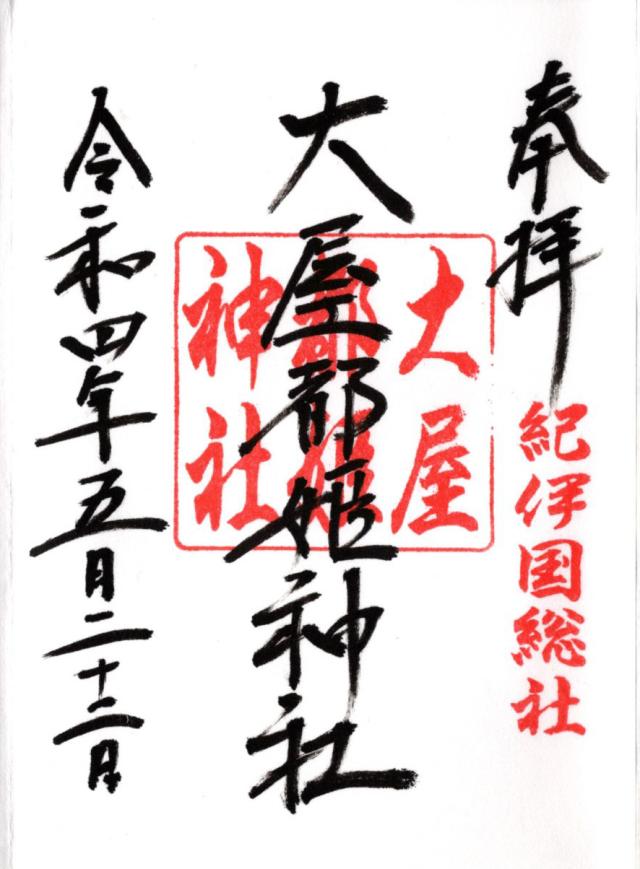 奉拝
紀伊国総社
大屋都姫神社
大屋
都姫
神社
令和四年五月二十二日